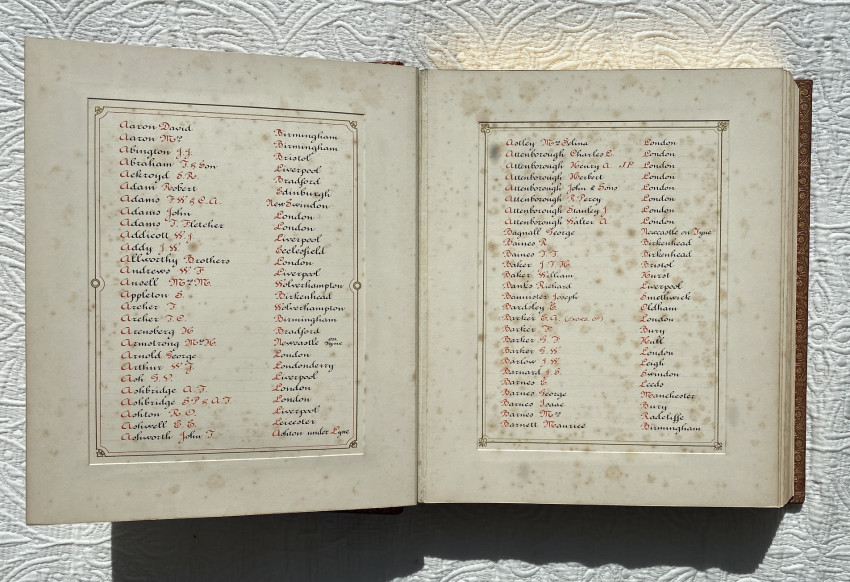 Aaron David Birmingham
Aaron Mrs Birmingham
Abington J.J. Bristol
Abraham T. & Son Liverpool
Ackroyd S.R. Bradford
Adam Robert Edinburgh
Adams F.W & C.A. New Swindon
Adams John London
Adams T. Fletcher London
Addicott W.J Liverpool
Addy J.W Ecclesfield
Allworthy Brothers London
Andrews W F Liverpool
Ansell Mrs M. Wolverhampton
Appleton E. Birkenhead
Archer T Wolverhampton
Archer T.E. Birmingham
Arensberg H Bradford
Armstrong Mrs H. Newcastle on Tyne
Arnold George London
Arthur W.J Londonderry
Ash G.V. Liverpool
Ashbridge A.T. London
Ashbridge E.P & A.T London
Ashton R.O. Liverpool
Ashwell E.E. Leicester
Ashworth John T Ashton under Lyne
Astley Mrs Selina London
Attenborough Charles E. London
Attenborough Henry A. J.P. London
Attenborough Herbert London
Attenborough John & Sons London
Attenborough R. Percy London
Attenborough Stanley J London
Attenborough Walter A. London
Bagnall George Newcastle on Tyne
Baines R. Birkenhead
Baines T.T. Birkenhead
Baker J.T.H. Bristol
Baker William Hurst
Banks Richard Liverpool
Bannister Joseph Smethwick
Bardsley E. Oldham
Barker E.A. London
Barker F. Bury
Barker G.P Hull
Barker G.W London
Barlow J.W. Leigh
Barnard J.E. Swindon
Barnes E. Leeds
Barnes George Manchester
Barnes Isaac Bury
Barnes Mrs Radcliffe
Barnett Maurice Birmingham